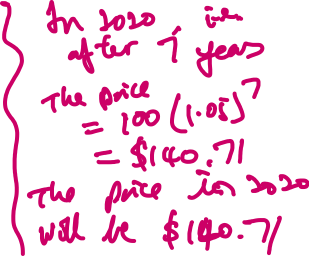 In 2020 i.e.
after 7 years
The price
= 100 (1.05)^7
= $140.71
The price in 2020
will be $140.71